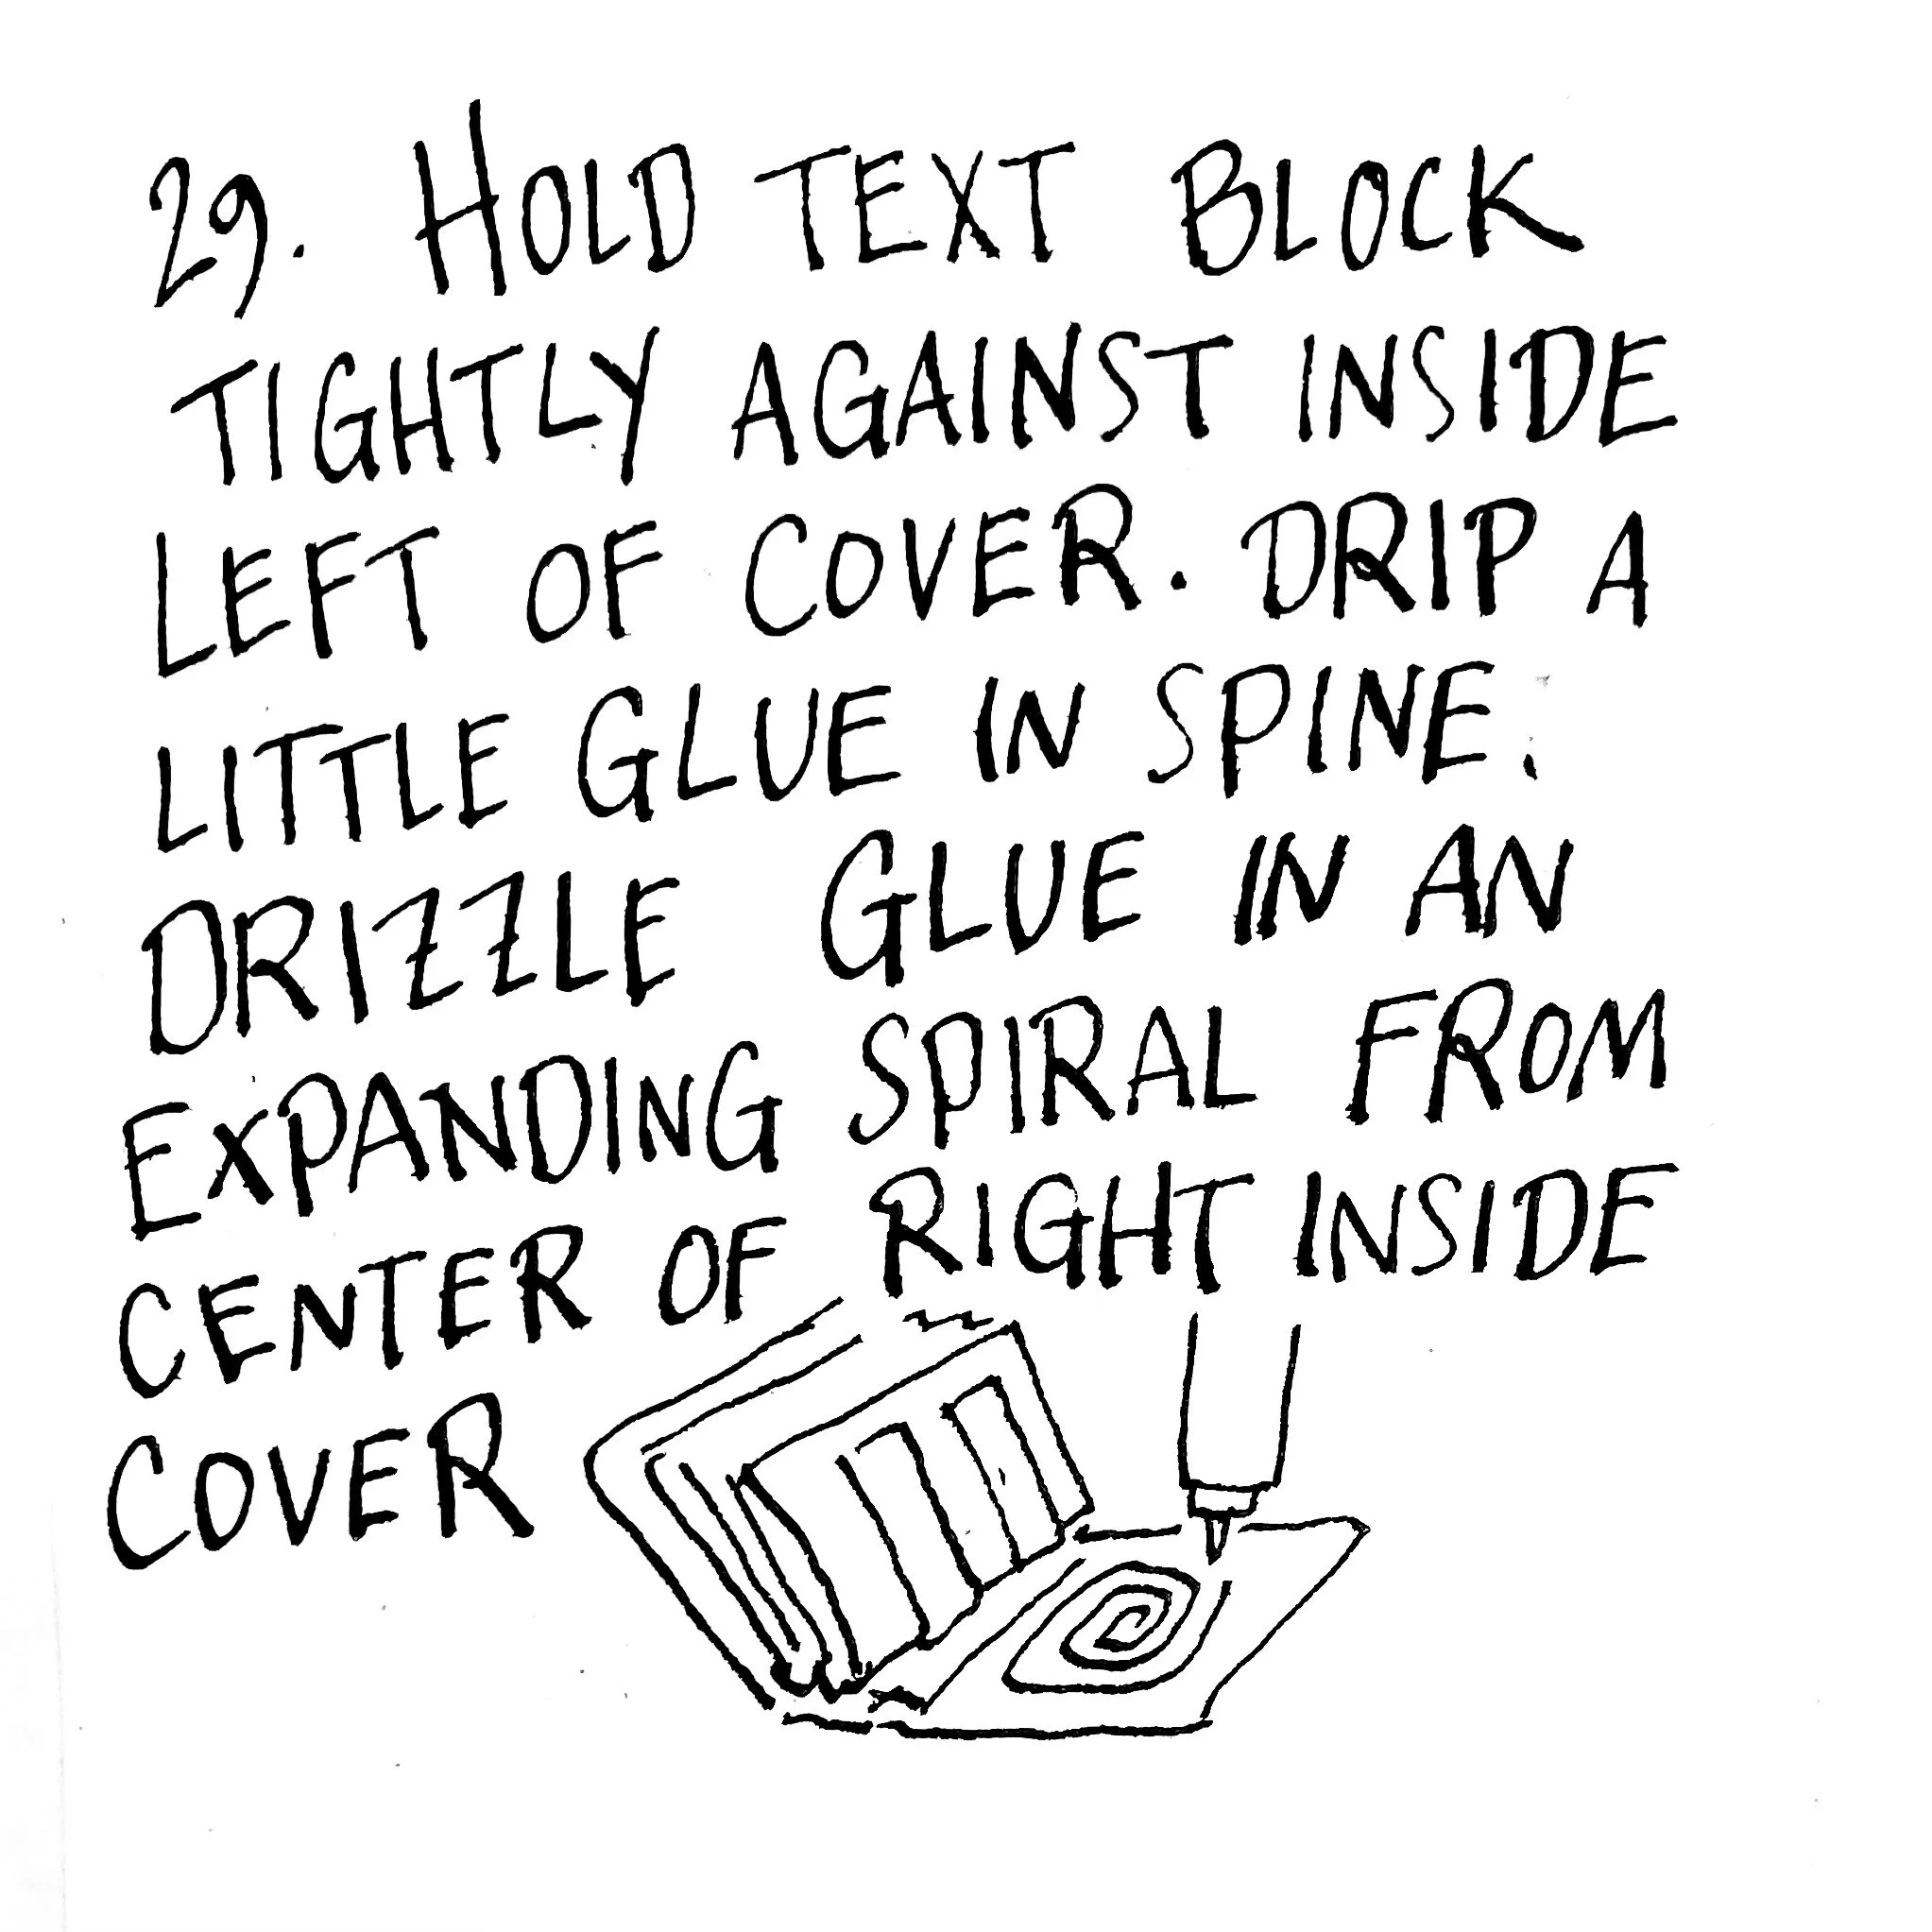 29. HOLD TEXT BLOCK
TIGHTLY AGAINST INSIDE
LEFT OF COVER. DRIP A
LITTLE GLUE IN SPINE.
DRIZZLE GLUE IN AN
EXPANDING SPIRAL FROM
CENTER OF RIGHT INSIDE
COVER